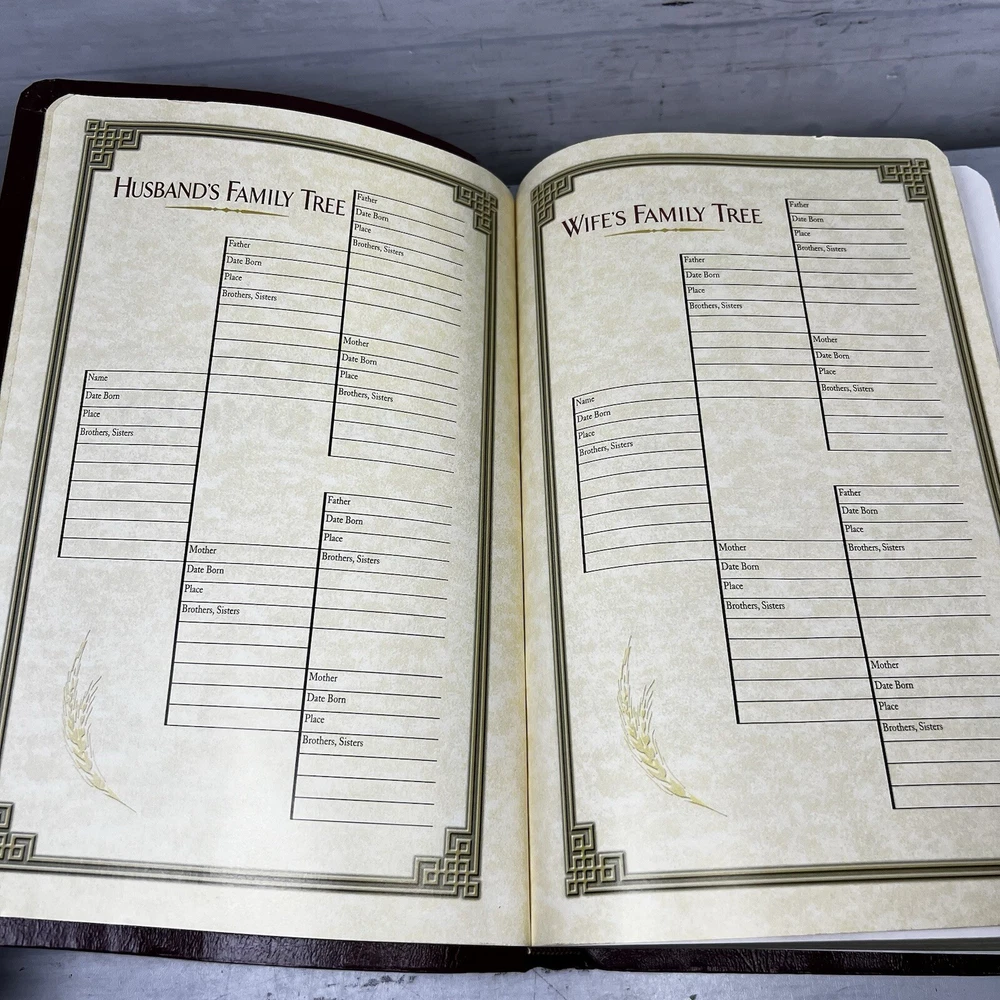 HUSBAND'S FAMILY TREE
Name
Date Born
Place
Brothers, Sisters
Father
Date Born
Place
Brothers, Sisters
Mother
Date Born
Place
Brothers, Sisters
Father
Date Born
Place
Brothers, Sisters
Mother
Date Born
Place
Brothers, Sisters
Father
Date Born
Place
Brothers, Sisters
Mother
Date Born
Place
Brothers, Sisters
WIFE'S FAMILY TREE
Name
Date Born
Place
Brothers, Sisters
Father
Date Born
Place
Brothers, Sisters
Mother
Date Born
Place
Brothers, Sisters
Father
Date Born
Place
Brothers, Sisters
Mother
Date Born
Place
Brothers, Sisters
Father
Date Born
Place
Brothers, Sisters
Mother
Date Born
Place
Brothers, Sisters